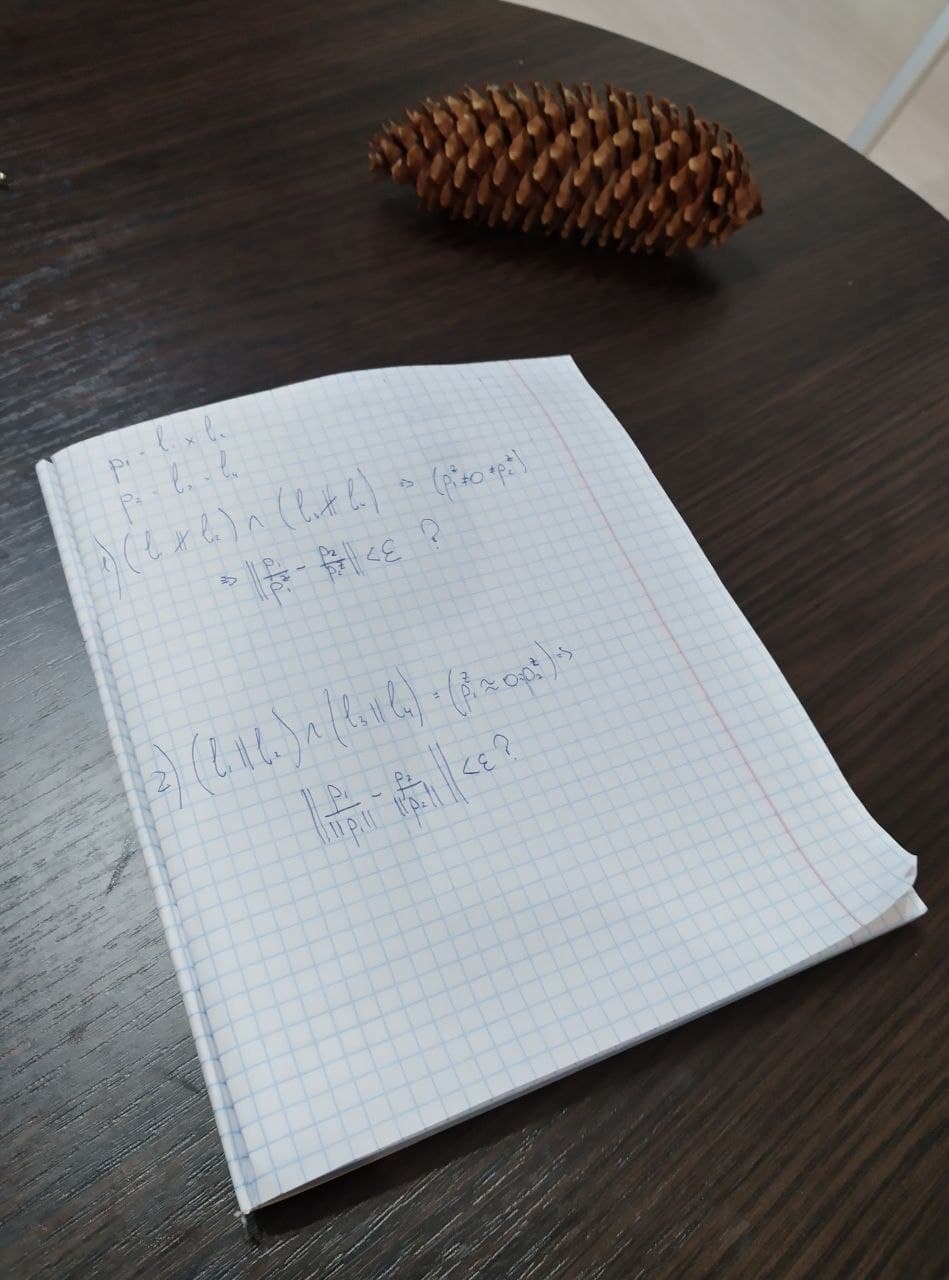 p₁ = l₁ × l₂
p₂ = l₃ × l₄
1) (l₁ ∦ l₂) ∧ (l₃ ∦ l₄) ⇒ (p₁ᶻ ≠ 0 ≠ p₂ᶻ)
⇒ ‖p₁/p₁ᶻ - p₂/p₂ᶻ‖ < ε ?
2) (l₁ || l₂) ∧ (l₃ || l₄) = (p₁ᶻ ≈ 0 ≈ p₂ᶻ) ⇒
‖p₁/‖p₁‖ - p₂/‖p₂‖‖ < ε ?